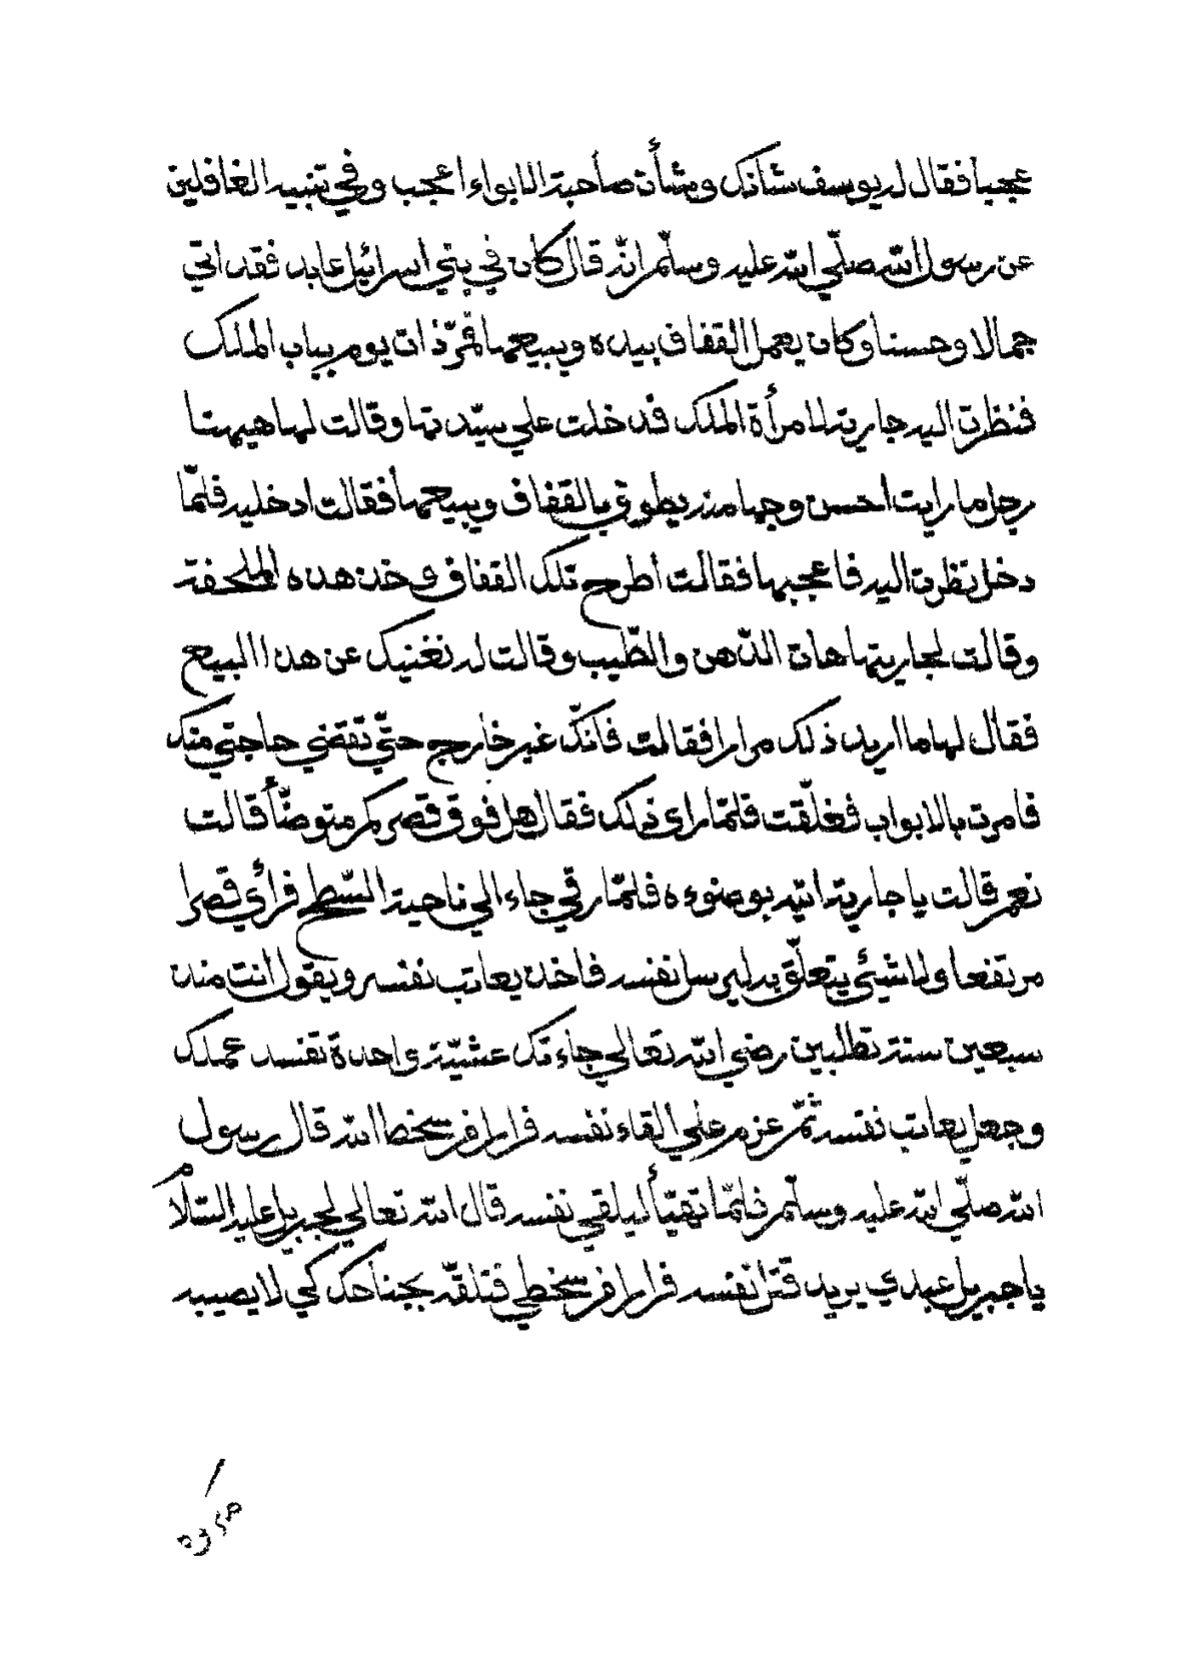 عجبا فقال له يوسف شانك وشأن صاحبة الابواء اعجب وفي تنبيه الغافلين
عن رسول الله صلّي الله عليه وسلّم انّه قال كان في بني اسرائيل عابد فقد اتي
جمالا وحسنا وكان يعمل القفاف بيده ويبيعها فمرّ ذات يوم بباب الملك
فنظرت اليه جارية لامرأة الملك فدخلت علي سيّدتها وقالت لها هيهنا
رجل ما رايت احسن وجها منه يطوف بالقفاف ويبيعها فقالت ادخليه فلمّا
دخل نظرت اليه فاعجبها فقالت أطرح تلك القفاف وخذ هذه الملحفة
وقالت لجاريتها هات الدّهن والطّيب وقالت له نغنيك عن هذا البيع
فقال لها ما اريد ذلك مرارا فقالت فانّك غير خارج حتّي تقضي حاجتي منك
فامرت بالابواب فغلّقت فلمّا راى ذلك فقال هل فوق قصركم متوضّأ قالت
نعم قالت يا جارية اتيه بوضوءه فلمّا رقي جاء الي ناحية السّطح فرأي قصرا
مرتفعا ولا شيئ يتعلّق به ليرسل نفسه فاخذ يعاتب نفسه ويقول انت منذ
سبعين سنة تطلبين رضي الله تعالي جاءتك عشيّة واحدة تفسد عملك
وجعل يعاتب نفسه ثمّ عزم علي القاء نفسه فرارا من سخط الله قال رسول
الله صلّي الله عليه وسلّم فلمّا تهيّأ ليلقي نفسه قال الله تعالي لجبريل عليه السّلام
يا جبريل عبدي يريد قتل نفسه فرارا من سخطي فتلقّه بجناحك كي لا يصيبه